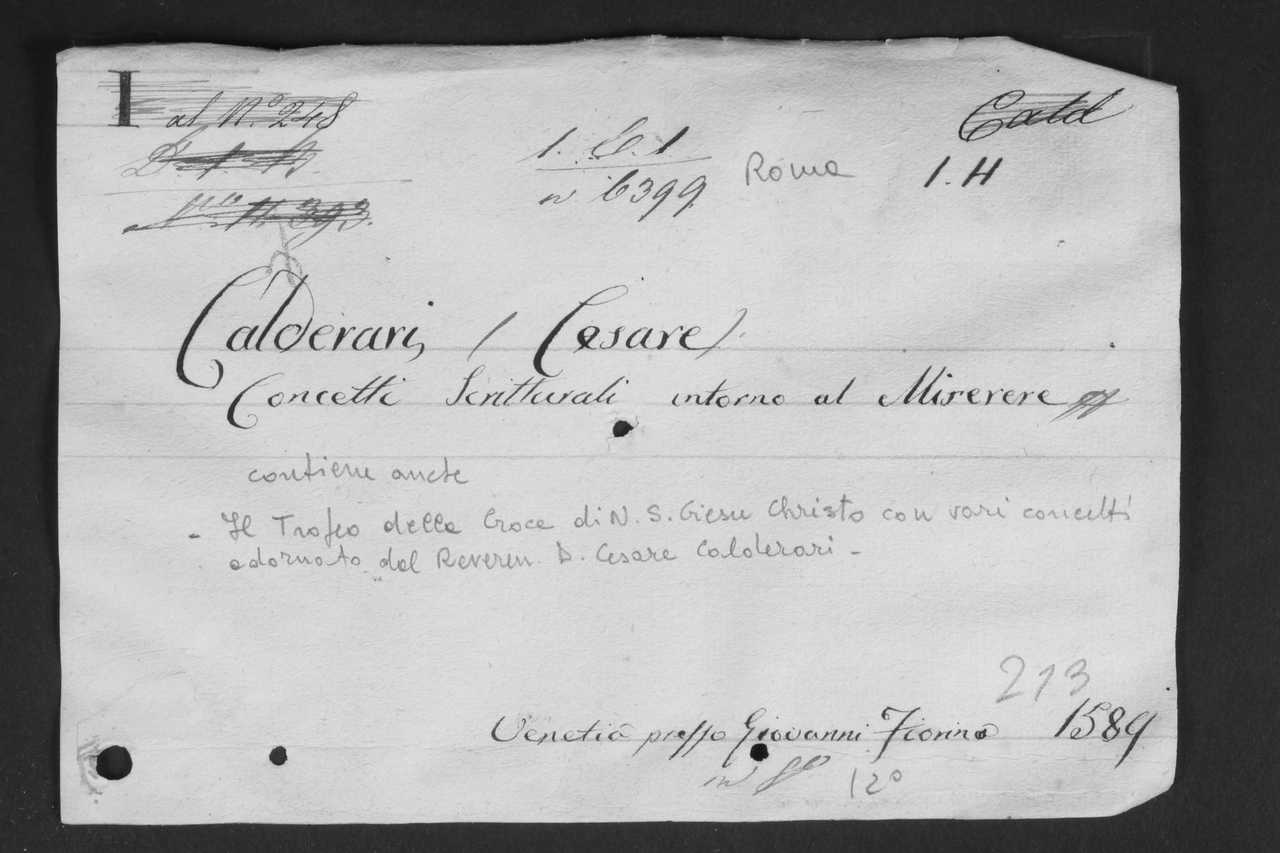 I al N.º 248
1. C. 1
n 6399
Roma
1. H
Cald
N.º 11. 393.
Calderari, (Cesare).
Concetti Scritturali intorno al Miserere
contiene anche
- Il Trofeo della Croce di N. S. Giesu Christo con vari concetti
adornato dal Reveren. D. Cesare Calderari -
213
Venetia presso Giovanni Fiorina 1589
in 8º 12º